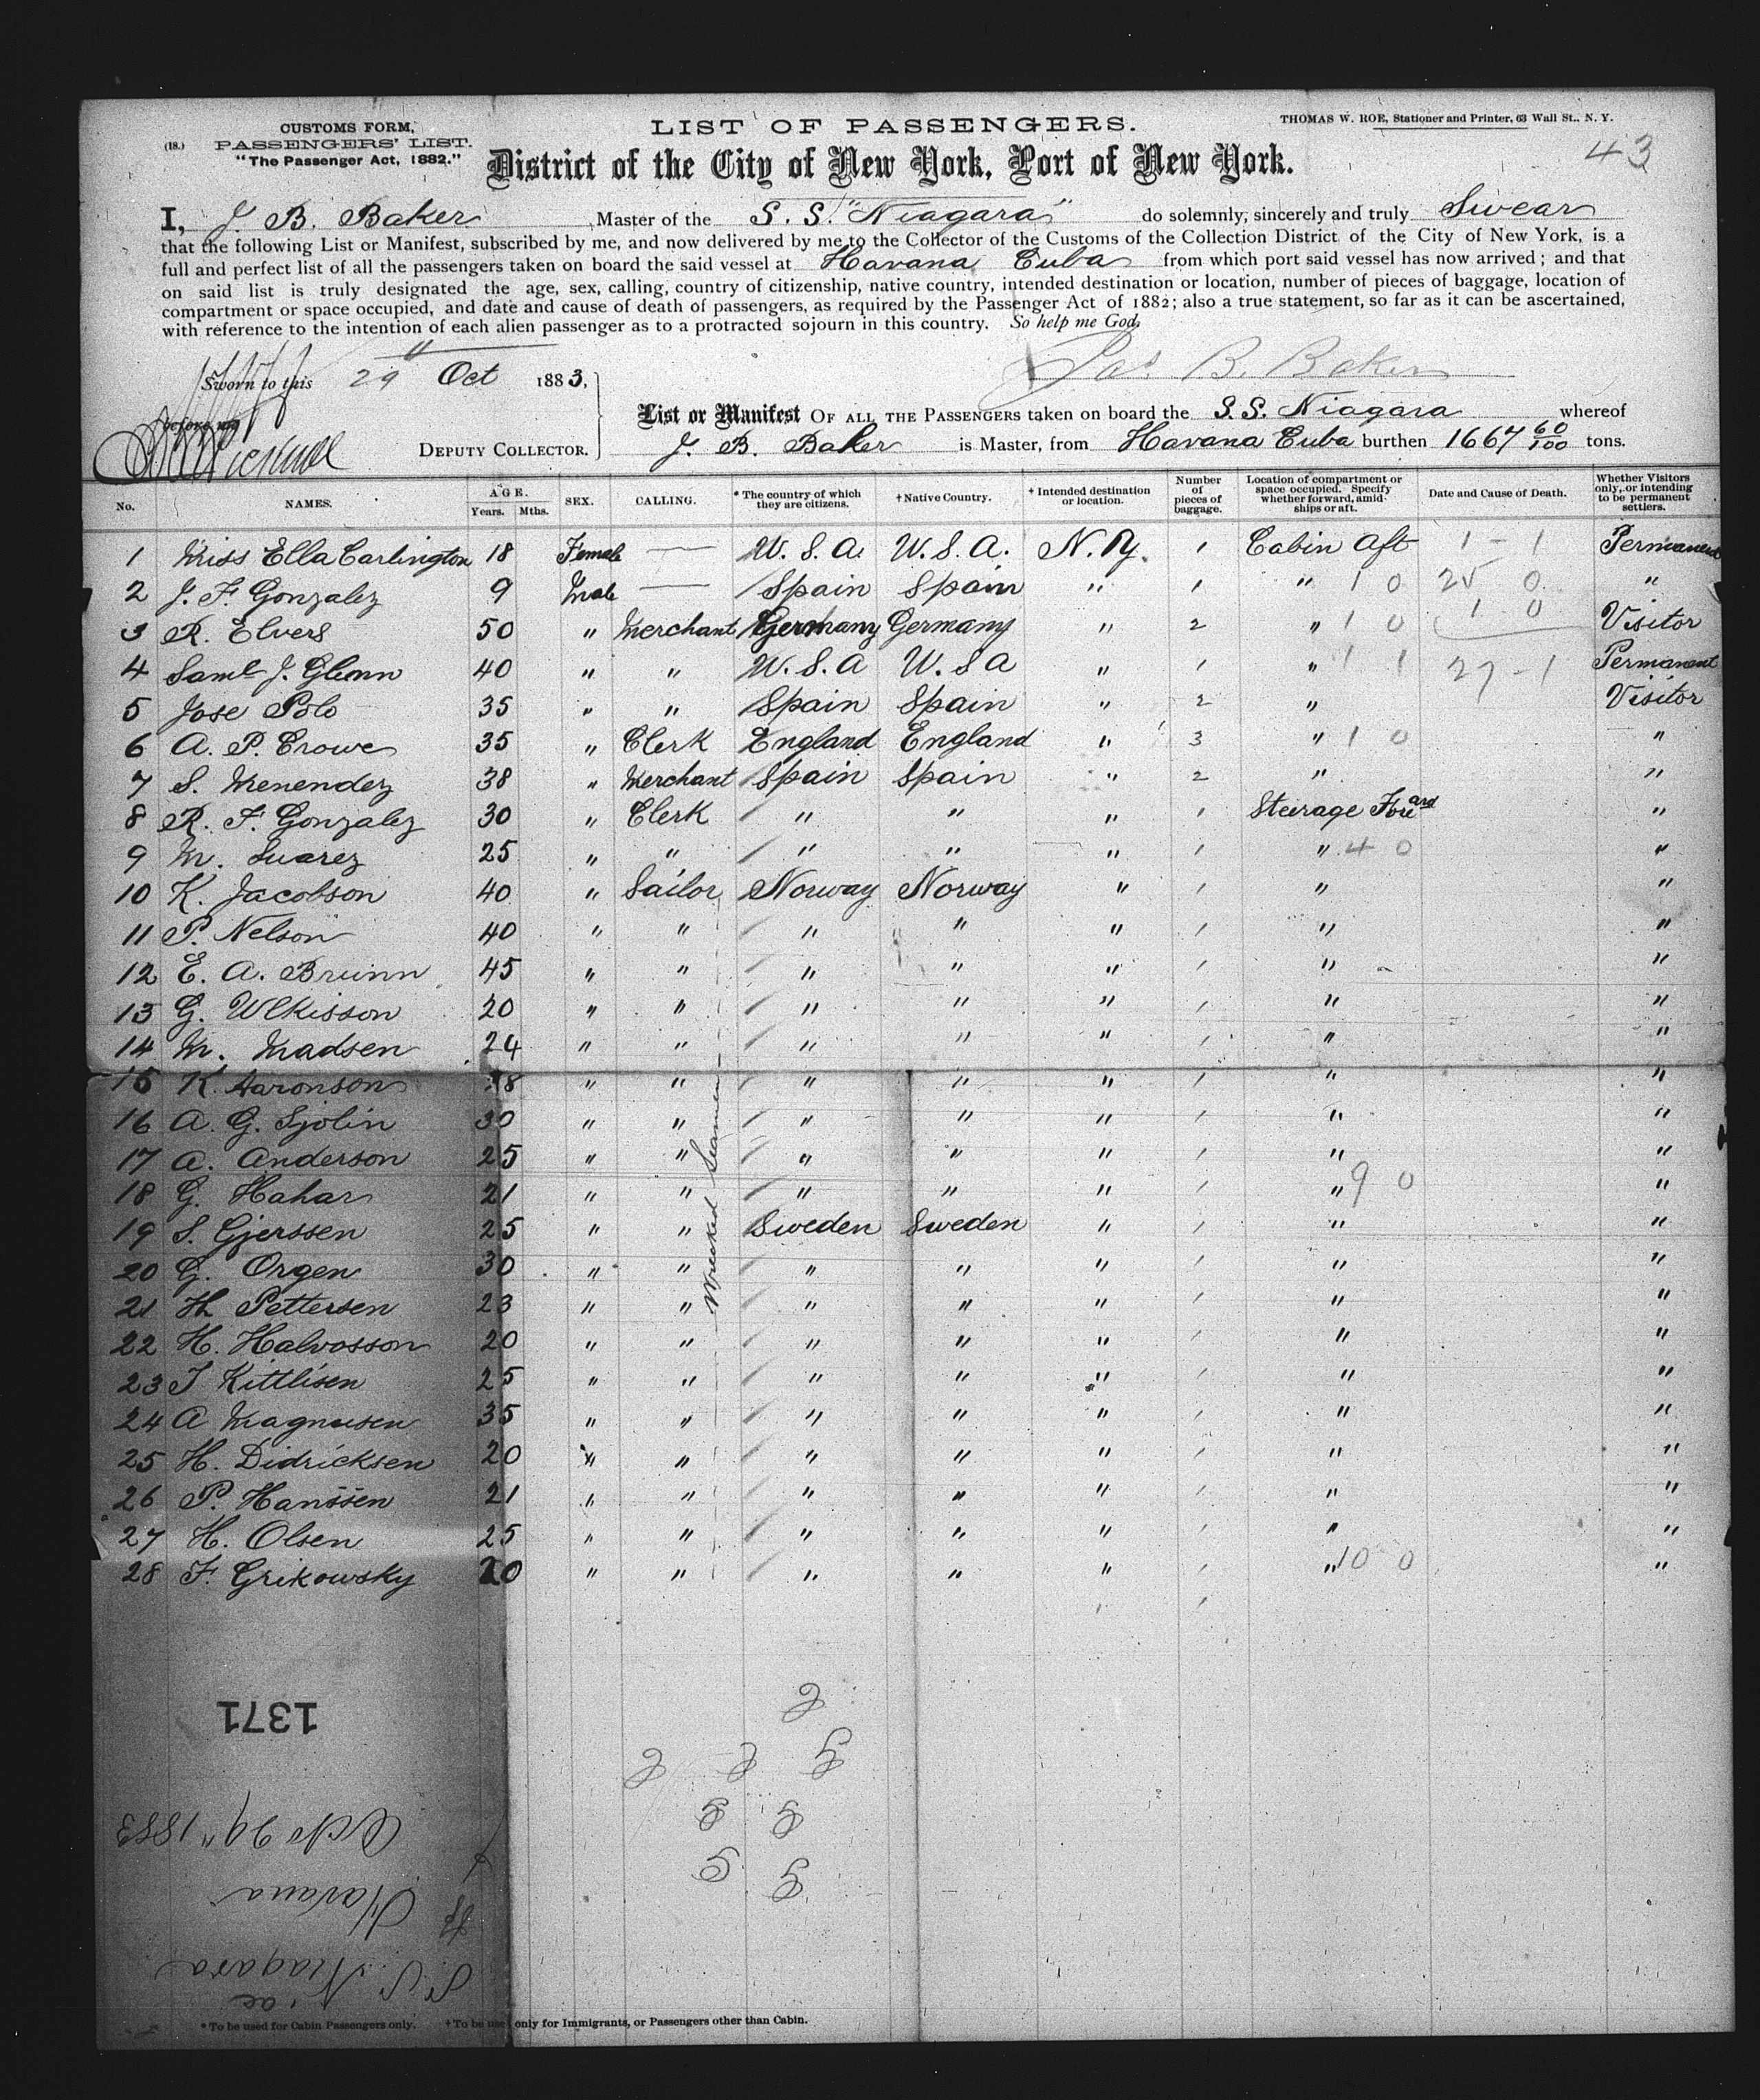 CUSTOMS FORM,
(18.) PASSENGERS' LIST.
"The Passenger Act, 1882."
LIST OF PASSENGERS.
THOMAS W. ROE, Stationer and Printer, 63 Wall St., N. Y.
43
District of the City of New York, Port of New York.
I, J. B. Baker Master of the S. S. "Niagara" do solemnly, sincerely and truly Swear
that the following List or Manifest, subscribed by me, and now delivered by me to the Collector of the Customs of the Collection District of the City of New York, is a
full and perfect list of all the passengers taken on board the said vessel at Havana Cuba from which port said vessel has now arrived; and that
on said list is truly designated the age, sex, calling, country of citizenship, native country, intended destination or location, number of pieces of baggage, location of
compartment or space occupied, and date and cause of death of passengers, as required by the Passenger Act of 1882; also a true statement, so far as it can be ascertained,
with reference to the intention of each alien passenger as to a protracted sojourn in this country. So help me God.
Sworn to this 29 Oct 1883,
Jas. B. Baker
before me
DEPUTY COLLECTOR.
List or Manifest OF ALL THE PASSENGERS taken on board the S.S. Niagara whereof
J. B. Baker is Master, from Havana Cuba burthen 1667 60/100 tons.
No. NAMES. AGE. Years. Mths. SEX. CALLING. * The country of which they are citizens. † Native Country. † Intended destination or location. Number of pieces of baggage. Location of compartment or space occupied. Specify whether forward, amidships or aft. Date and Cause of Death. Whether Visitors only, or intending to be permanent settlers.
1 Miss Ella Carlington 18 Female — U.S.A. U.S.A. N.Y. 1 Cabin Aft 1 - 1 Permanent
2 J. F. Gonzalez 9 Male — Spain Spain " 1 " 1 0 25 0 "
3 R. Elvers 50 " Merchant Germany Germany " 2 " 1 0 1 0 Visitor
4 Saml J. Glenn 40 " " U.S.A U.S A " 1 " 1 1 27 - 1 Permanent
5 Jose Polo 35 " " Spain Spain " 2 " Visitor
6 A. P. Crowe 35 " Clerk England England " 3 " 1 0 "
7 S. Menendez 38 " Merchant Spain Spain " 2 " "
8 R. F. Gonzalez 30 " Clerk " " " 1 Steerage Foreard "
9 M. Suarez 25 " " " " " 1 " 4 0 "
10 K. Jacobson 40 " Sailor Norway Norway " 1 " "
11 P. Nelson 40 " " " " " 1 " "
12 E. A. Brunn 45 " " " " " 1 " "
13 G. Wlkisson 20 " " " " " 1 " "
14 M. Madsen 24 " " " " " 1 " "
15 K. Aaronson 18 " " " " " 1 " "
16 A. G. Sjolin 30 " " " " " 1 " "
17 A. Anderson 25 " " " " " 1 " "
18 G. Hahar 21 " " " " " 1 " 9 0 "
19 S. Gjerssen 25 " " Sweden Sweden " 1 " "
20 G. Orgen 30 " " " " " 1 " "
21 H. Pettersen 23 " " " " " 1 " "
22 H. Halvosson 20 " " " " " 1 " "
23 J Kittlisen 25 " " " " " 1 " "
24 A Magnusen 35 " " " " " 1 " "
25 H. Didricksen 20 " " " " " 1 " "
26 P. Hanssen 21 " " " " " 1 " "
27 H. Olsen 25 " " " " " 1 " "
28 F. Grikowsky 20 " " " " " 1 " 10 0 "
Wrecked Seamen
1371
Oct 29" 1883
Havana
S.S. Niagara
* To be used for Cabin Passengers only. † To be used only for Immigrants, or Passengers other than Cabin.